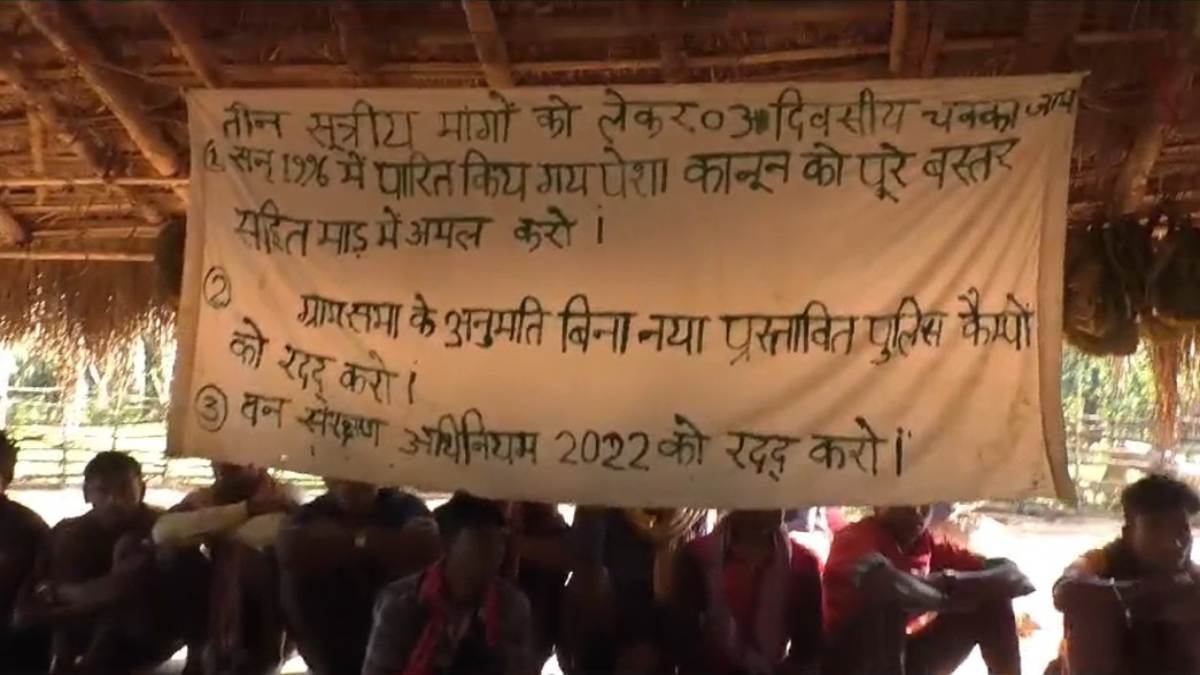 तीन सूत्रीय मांगों को लेकर 03 दिवसीय चक्का जाम
1. सन् 1996 में पारित किय गय पेशा कानून को पूरे बस्तर
सहित माड़ में अमल करो ।
② ग्रामसभा के अनुमति बिना नया प्रस्तावित पुलिस कैम्पों
को रदद् करो ।
③ वन संरक्षण अधिनियम 2022 को रदद् करो ।